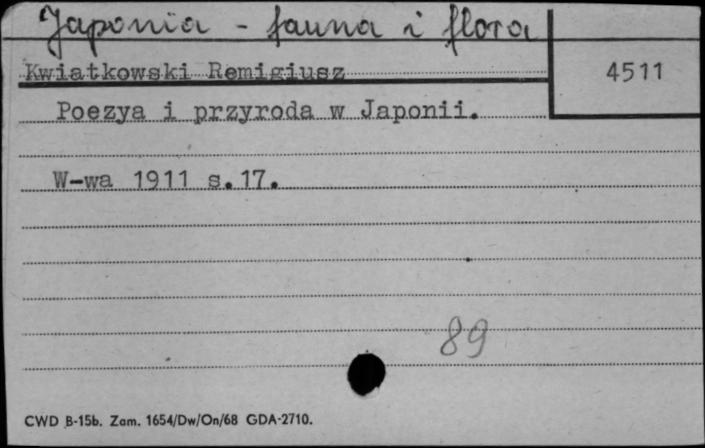 Japonia - fauna i flora
Kwiatkowski Remigiusz
4511
Poezya i przyroda w Japonii.
W-wa 1911 s.17.
89
CWD B-15b. Zam. 1654/Dw/On/68 GDA-2710.